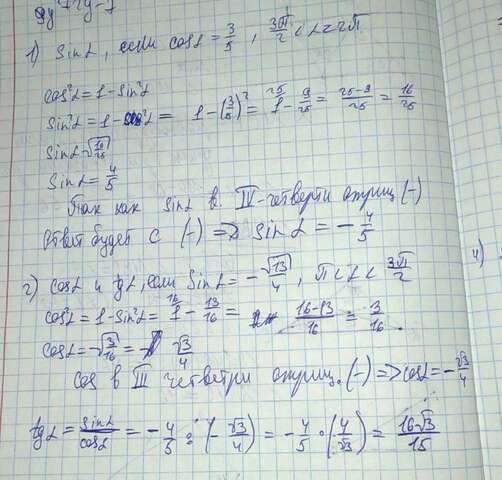 1) sin L, если cos L = 3/5, 3π/2 < L < 2π
cos²L = 1 - sin²L
sin²L = 1 - cos²L = 1 - (3/5)² = 1 - 9/25 = 25-9/25 = 16/25
sin L = √16/25
sin L = 4/5
Так как sin L в IV-четверти отриц (-)
Ответ будет с (-) => sin L = - 4/5
2) cos L и tg L, если sin L = - √13/4, π < L < 3π/2
cos²L = 1 - sin²L = 1 - 13/16 = 16-13/16 = 3/16
cos L = √3/16 = √3/4
cos в III четверти отриц. (-) => cos L = - √3/4
tg L = sin L/cos L = - 4/5 : (- √3/4) = - 4/5 · (4/√3) = 16√3/15